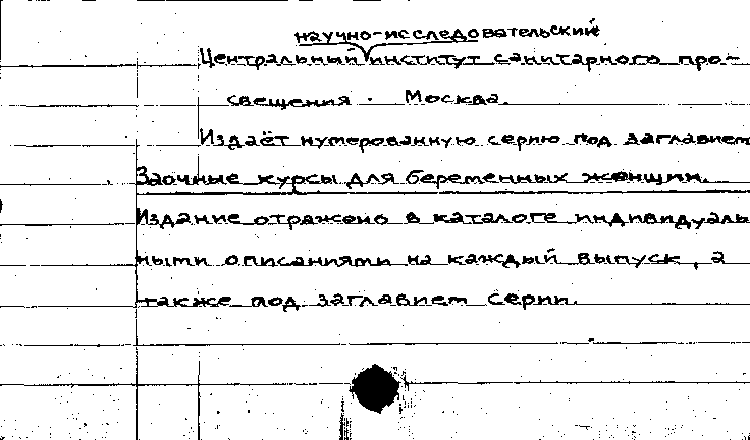 научно-исследовательский
Центральный институт санитарного про-
свещения. Москва.
Издаёт нумерованную серию под заглавием
Заочные курсы для беременных женщин.
Издание отражено в каталоге индивидуаль
ными описаниями на каждый выпуск, а
также под заглавием серии.